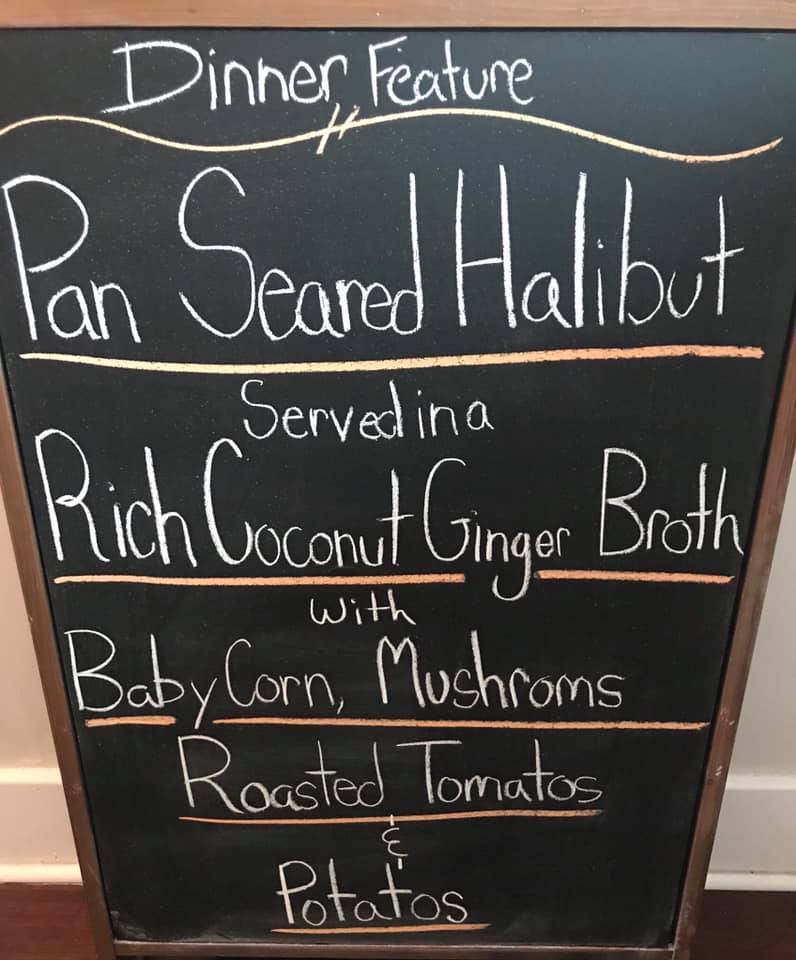 Dinner Feature
Pan Seared Halibut
Served in a
Rich Coconut Ginger Broth
with
Baby Corn, Mushroms
Roasted Tomatos
&
Potatos